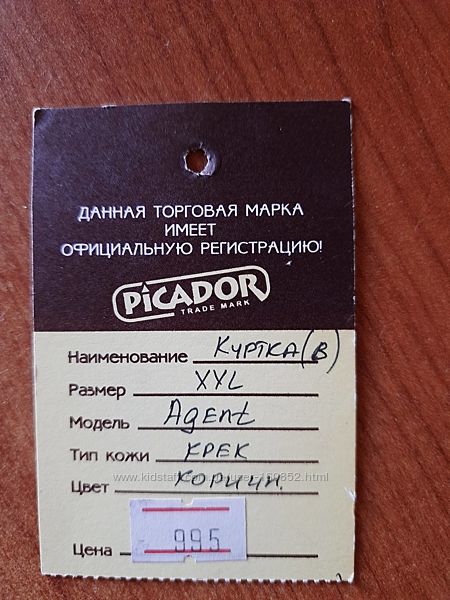 ДАННАЯ ТОРГОВАЯ МАРКА
ИМЕЕТ
ОФИЦИАЛЬНУЮ РЕГИСТРАЦИЮ!
PICADOR
TRADE MARK
Наименование Куртка (в)
Размер XXL
Модель Agent
Тип кожи крек
Цвет Коричн.
Цена 995